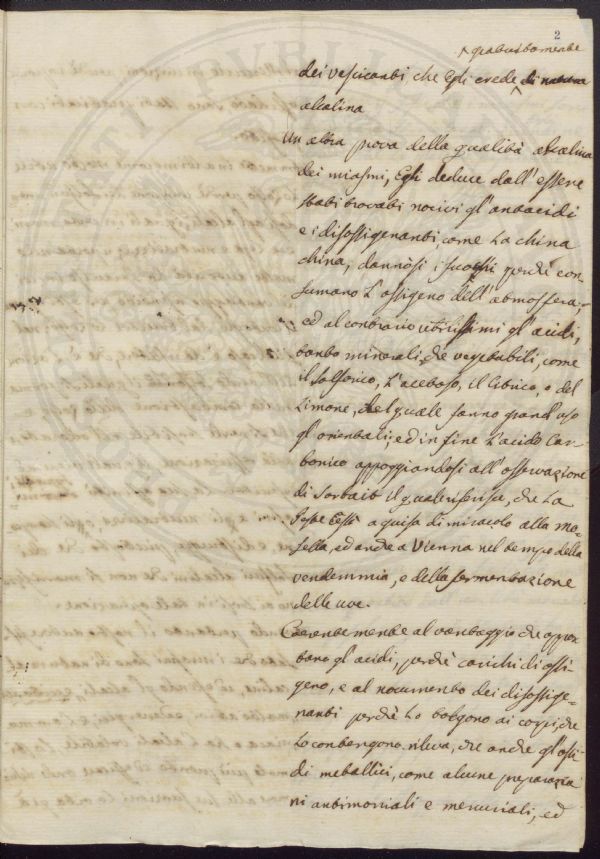 2
gratuitamente
dei vescicanti, che Egli crede di natura
alcalina
Un altra prova della qualità alcalina
dei miasmi, Egli deduce dall'essere
stati trovati nocivi gl'antacidi
e i disossigenanti, come la china
china, dannosi i fuochi perchè con-
sumano l'ossigeno dell'atmosfera;
ed al contrario utilissimi gl'acidi,
tanto minerali, che vegetabili, come
il solforico, l'acetoso, il citrico, o del
Limone, del quale fanno grand'uso
gl'orientali; ed in fine l'acido Car-
bonico appoggiandosi all'osservazione
di Sorbait il quale riferisce, che la
Peste cessò a guisa di miracolo alla Mo-
sella, ed anche a Vienna nel tempo della
vendemmia, e della fermentazione
delle uve.
Coerentemente al vantaggio che appor-
tano gl'acidi, perchè carichi di ossi-
geno, e al nocumento dei disossige-
nanti perchè lo tolgono ai corpi, che
lo contengono rileva, che anche gl'ossi-
di metallici, come alcune preparazio-
ni antimoniali e mercuriali, ed